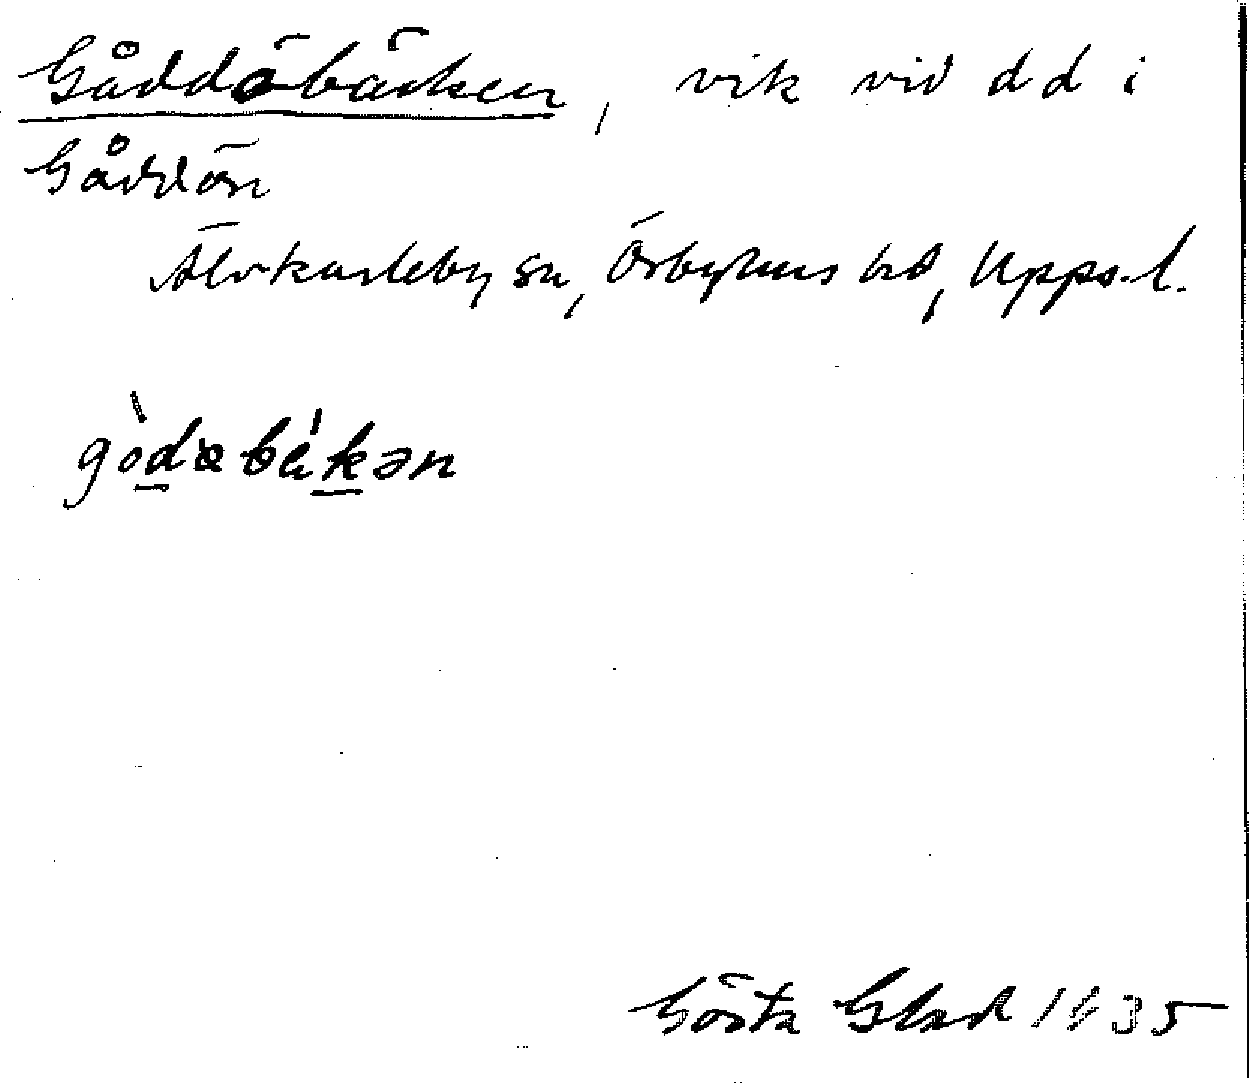 Gåddöbäcken, vik vid dd i
Gåddön
Älvkarleby sn, Örbyhus hd, Upps.l.
gòdəbä́kən
Gösta Glad 1935